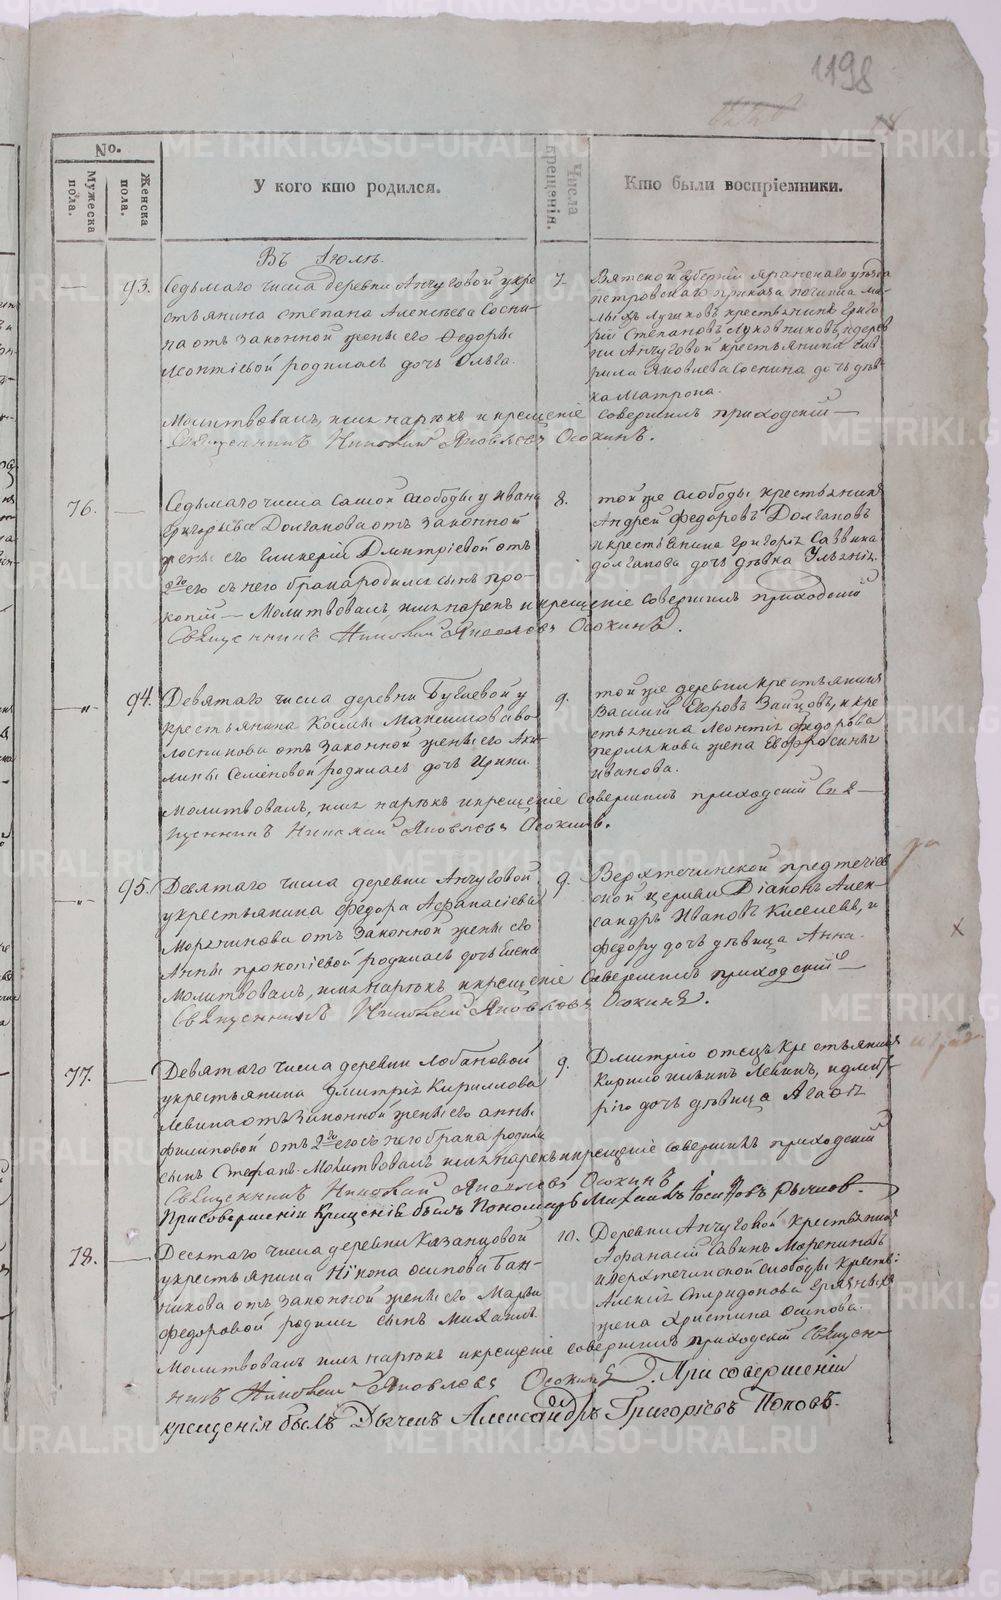 1198
No.
Мужеска пола.
Женска пола.
У кого кто родился.
Числа крещенія.
Кто были воспріемники.
Въ Іюлѣ.
93. Седьмаго числа деревни Анчуговой у кре
стьянина Степана Алексѣева Сосни
на отъ законной жены его Федоры
Леонтіевой родилась дочь Ольга.
7. Вятской губерніи Яранскаго уѣзда
Петровскаго приказа починка Ма
лыхъ крестьянинъ Григо
рій Степановъ Луковниковъ, и дерев
ни Анчуговой крестьянина Гав
рила Яковлева Соснина дочь дѣв
ка Матрона.
Молитвовалъ, имя нарѣкъ и крещеніе совершилъ приходскій
Священникъ Николай Яковлевъ Осокинъ.
76. Седьмаго числа самой слободы у Ивана
Григорьева Долганова отъ законной
жены его Гликеріи Дмитріевой отъ
2го его съ него брака родился сынъ Про-
копій — Молитвовалъ, имя нарекъ и крещеніе совершилъ приходскій
Священникъ Николай Яковлевъ Осокинъ.
8. той же слободы крестьянинъ
Андрей Федоровъ Долгановъ
и крестьянина Григорья Саввина
Долганова дочь дѣвка Ульянія.
94. Девятаго числа деревни Бугаевой у
крестьянина Космы Максимова Во
лосникова отъ законной жены его Аку-
лины Семеновой родилась дочь Ирина.
9. той же деревни крестьянинъ
Василій Егоровъ Зайцовъ, и кре
стьянина Леонтія Федорова
Пермякова жена Евфросинья
Иванова.
Молитвовалъ, имя нарѣкъ и крещеніе совершилъ приходскій Свя—
щенникъ Николай Яковлевъ Осокинъ.
95. Девятаго числа деревни Анчуговой
у крестьянина Федора Афанасіева
Моренинова отъ законной жены его
Анны Прокопіевой родилась дочь Елена
9. Верхтеченской Предтечіев
ской церкви Діаконъ Алек-
сандръ Ивановъ Киселевъ, и
Федору дочь дѣвица Анна.
Молитвовалъ, имя нарѣкъ и крещеніе совершилъ приходскій—
Священникъ Николай Яковлевъ Осокинъ.
77. Девятаго числа деревни Лобановой
у крестьянина Дмитрія Кириллова
Левина отъ законной жены его Анны
Филиповой отъ 2го его съ него брака родился
сынъ Стефанъ. Молитвовалъ имя нарекъ и крещеніе совершилъ приходскій
Священникъ Николай Яковлевъ Осокинъ
9. Дмитрію отецъ крестьянинъ
Кирило Ильинъ Левинъ, и Дмит-
рію дочь дѣвица Агафія
При совершеніи Крещенія былъ Пономарь Михаилъ Іосифовъ Рычковъ.
78. Десятаго числа деревни Казанцовой
у крестьянина Никона Осипова Бан-
никова отъ законной жены его Марьи
Федоровой родился сынъ Михаилъ.
10. Деревни Анчуговой крестьянинъ
Афанасій Савинъ Морениновъ
и Верхтеченской слободы крестьян:
Алексія Спиридонова Грязныхъ
жена Христина Осипова.
Молитвовалъ имя нарѣкъ и крещеніе совершилъ приходскій Священ-
никъ Николай Яковлевъ Осокинъ. При совершеніи
крещенія былъ Дьячекъ Александръ Григоріевъ Поповъ.